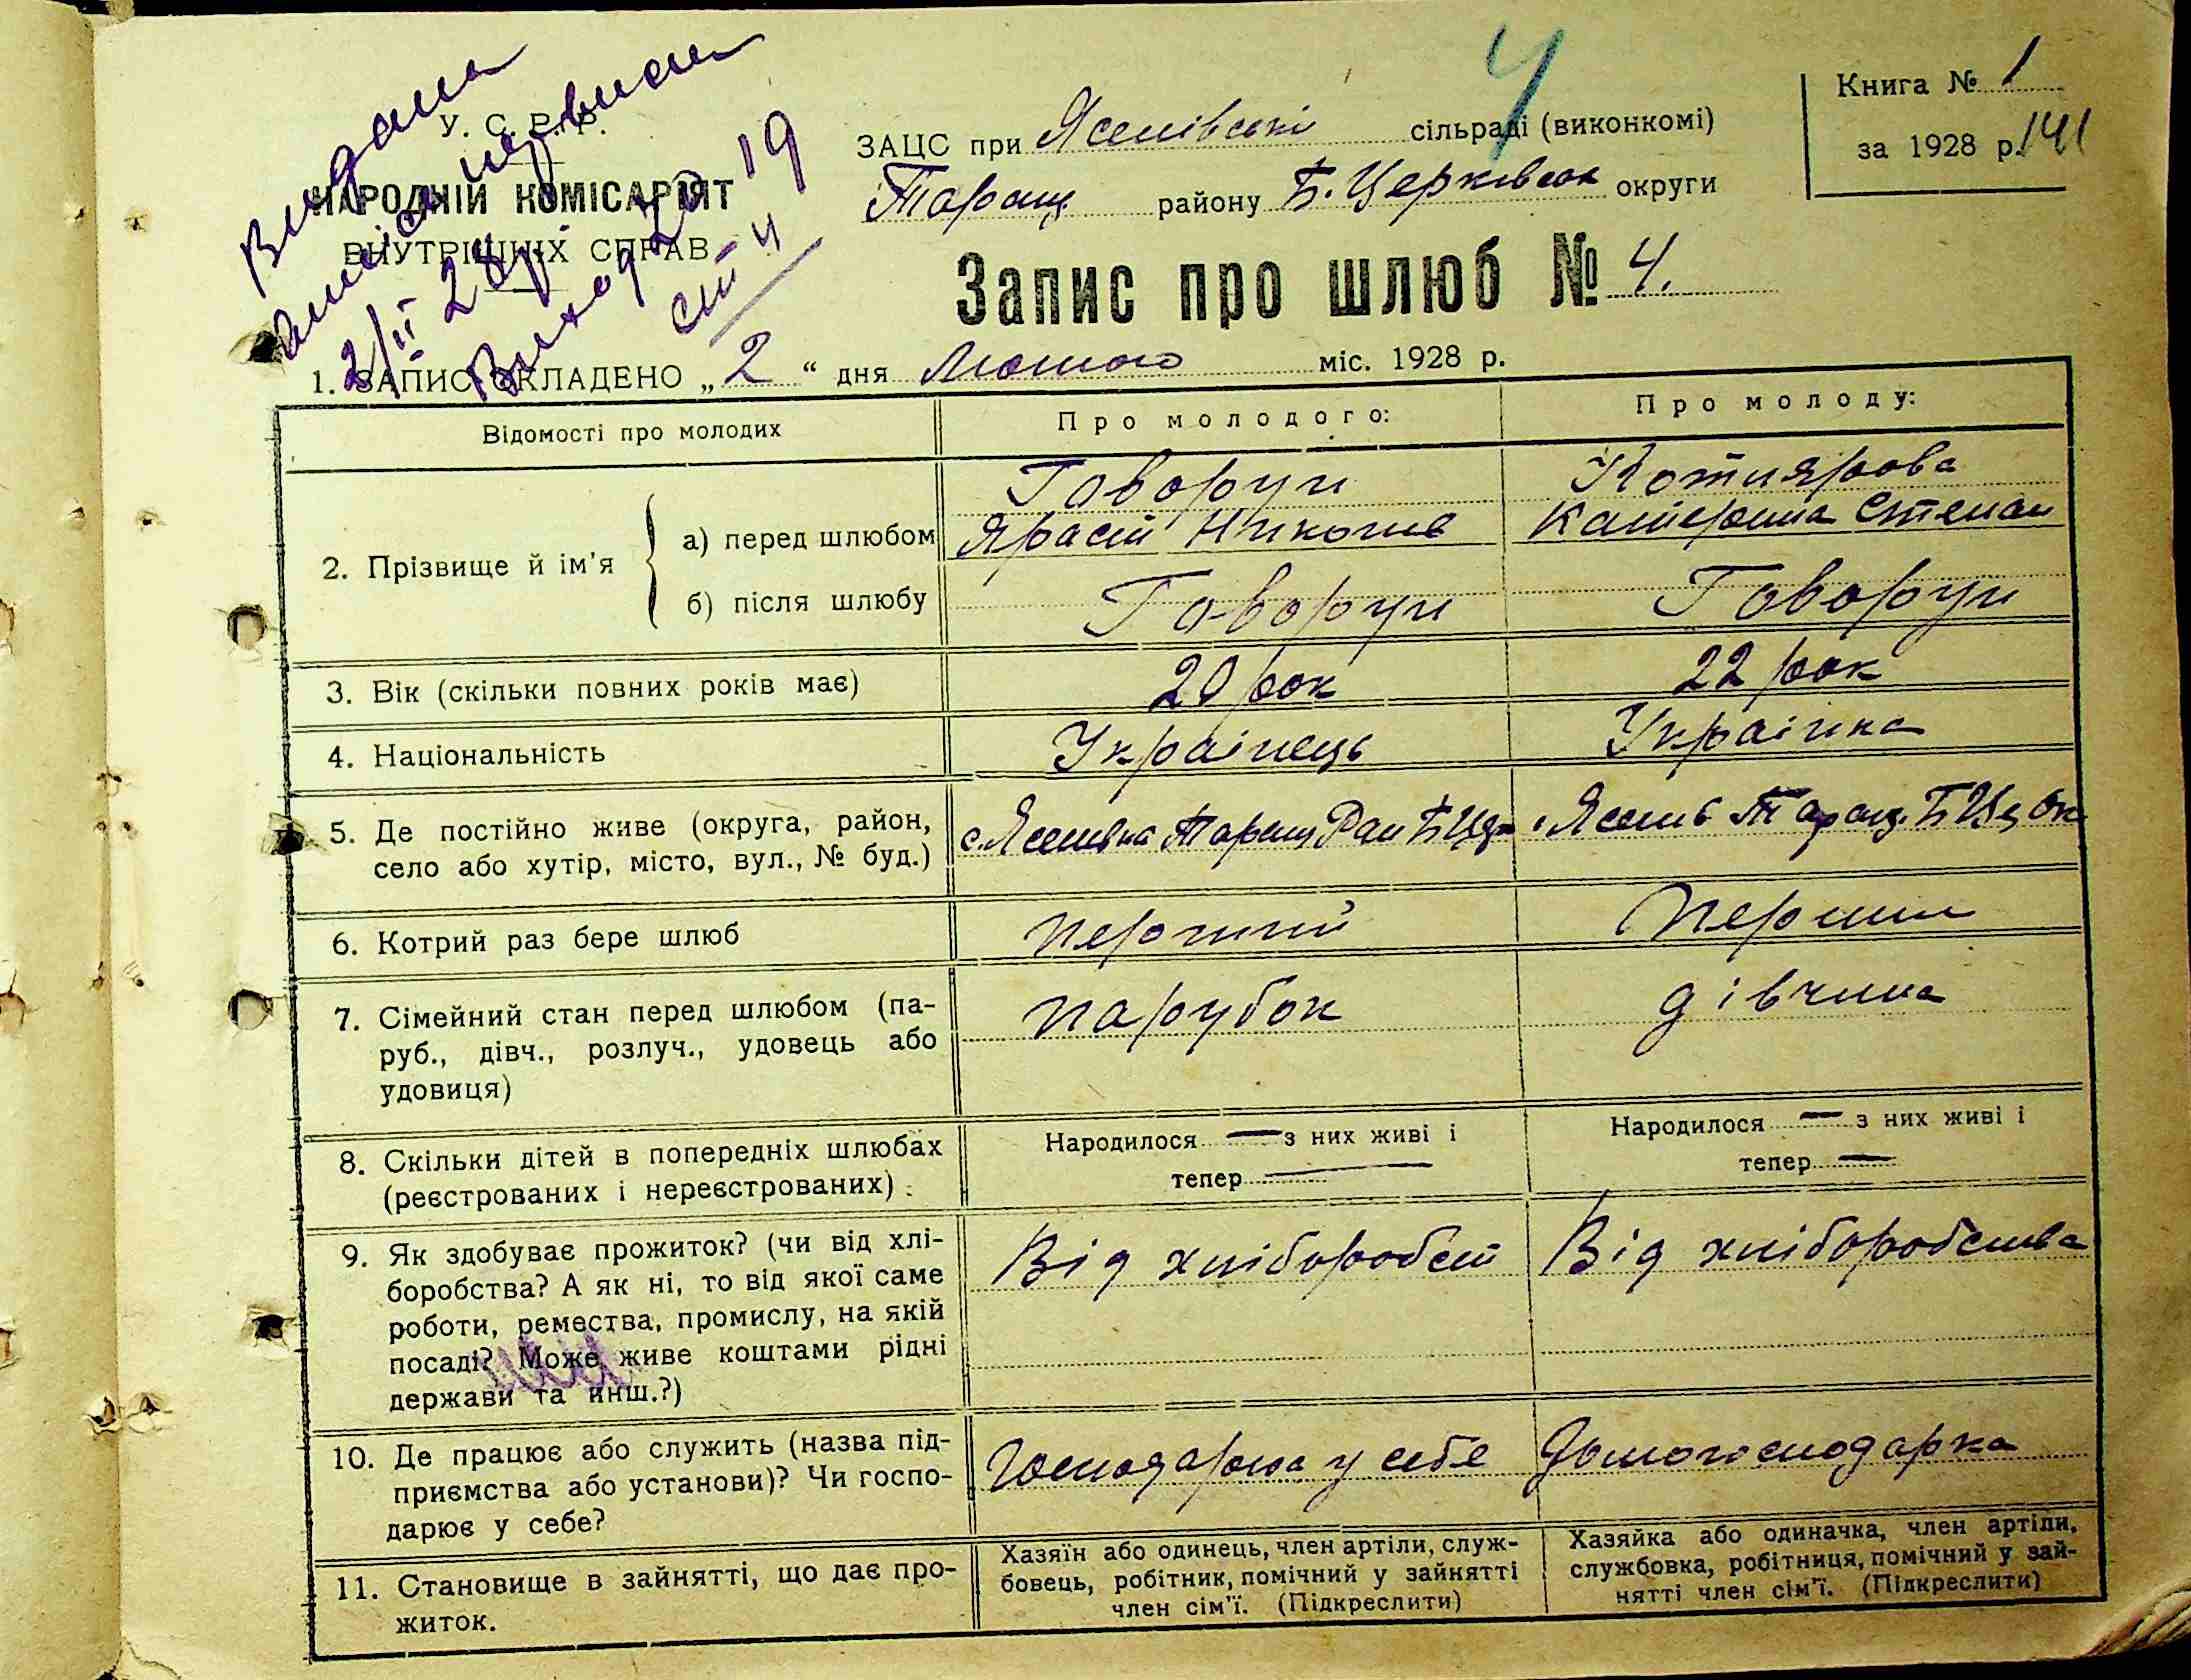 Видана
виписка
2/II 28 р.
Виход № 19
ст 4
У. С. Р. Р.
НАРОДНІЙ КОМІСАРІЯТ
ВНУТРІШНІХ СПРАВ
4
Книга № 1
за 1928 р. 141
ЗАЦС при Ясенівські сільраді (виконкомі)
Таращ району Б. Церківськ округи
Запис про шлюб № 4.
1. ЗАПИС СКЛАДЕНО „ 2 “ дня Лютого міс. 1928 р.
Відомості про молодих
Про молодого:
Про молоду:
2. Прізвище й ім'я
а) перед шлюбом
Говорун
Ярасій Никонів
Котлярова
Катерина Степан
б) після шлюбу
Говорун
Говорун
3. Вік (скільки повних років має)
20 рок
22 рок
4. Національність
Українець
Українка
5. Де постійно живе (округа, район,
село або хутір, місто, вул., № буд.)
с. Ясенівка Таращ Рай БЦер
с Ясенів Таращ. БЦ Ок
6. Котрий раз бере шлюб
перший
перший
7. Сімейний стан перед шлюбом (па-
руб., дівч., розлуч., удовець або
удовиця)
парубок
дівчина
8. Скільки дітей в попередніх шлюбах
(реєстрованих і нереєстрованих)
Народилося — з них живі і
тепер —
Народилося — з них живі і
тепер —
9. Як здобуває прожиток? (чи від хлі-
боробства? А як ні, то від якої саме
роботи, ремества, промислу, на якій
посаді? Може живе коштами рідні
держави та инш.?)
Від хліборобст
Від хліборобства
10. Де працює або служить (назва під-
приємства або установи)? Чи госпо-
дарює у себе?
Господарює у себе
Домогосподарка
11. Становище в зайнятті, що дає про-
житок.
Хазяїн або одинець, член артіли, служ-
бовець, робітник, помічний у зайнятті
член сім'ї. (Підкреслити)
Хазяйка або одиначка, член артіли,
службовка, робітниця, помічний у зай-
нятті член сім'ї. (Підкреслити)